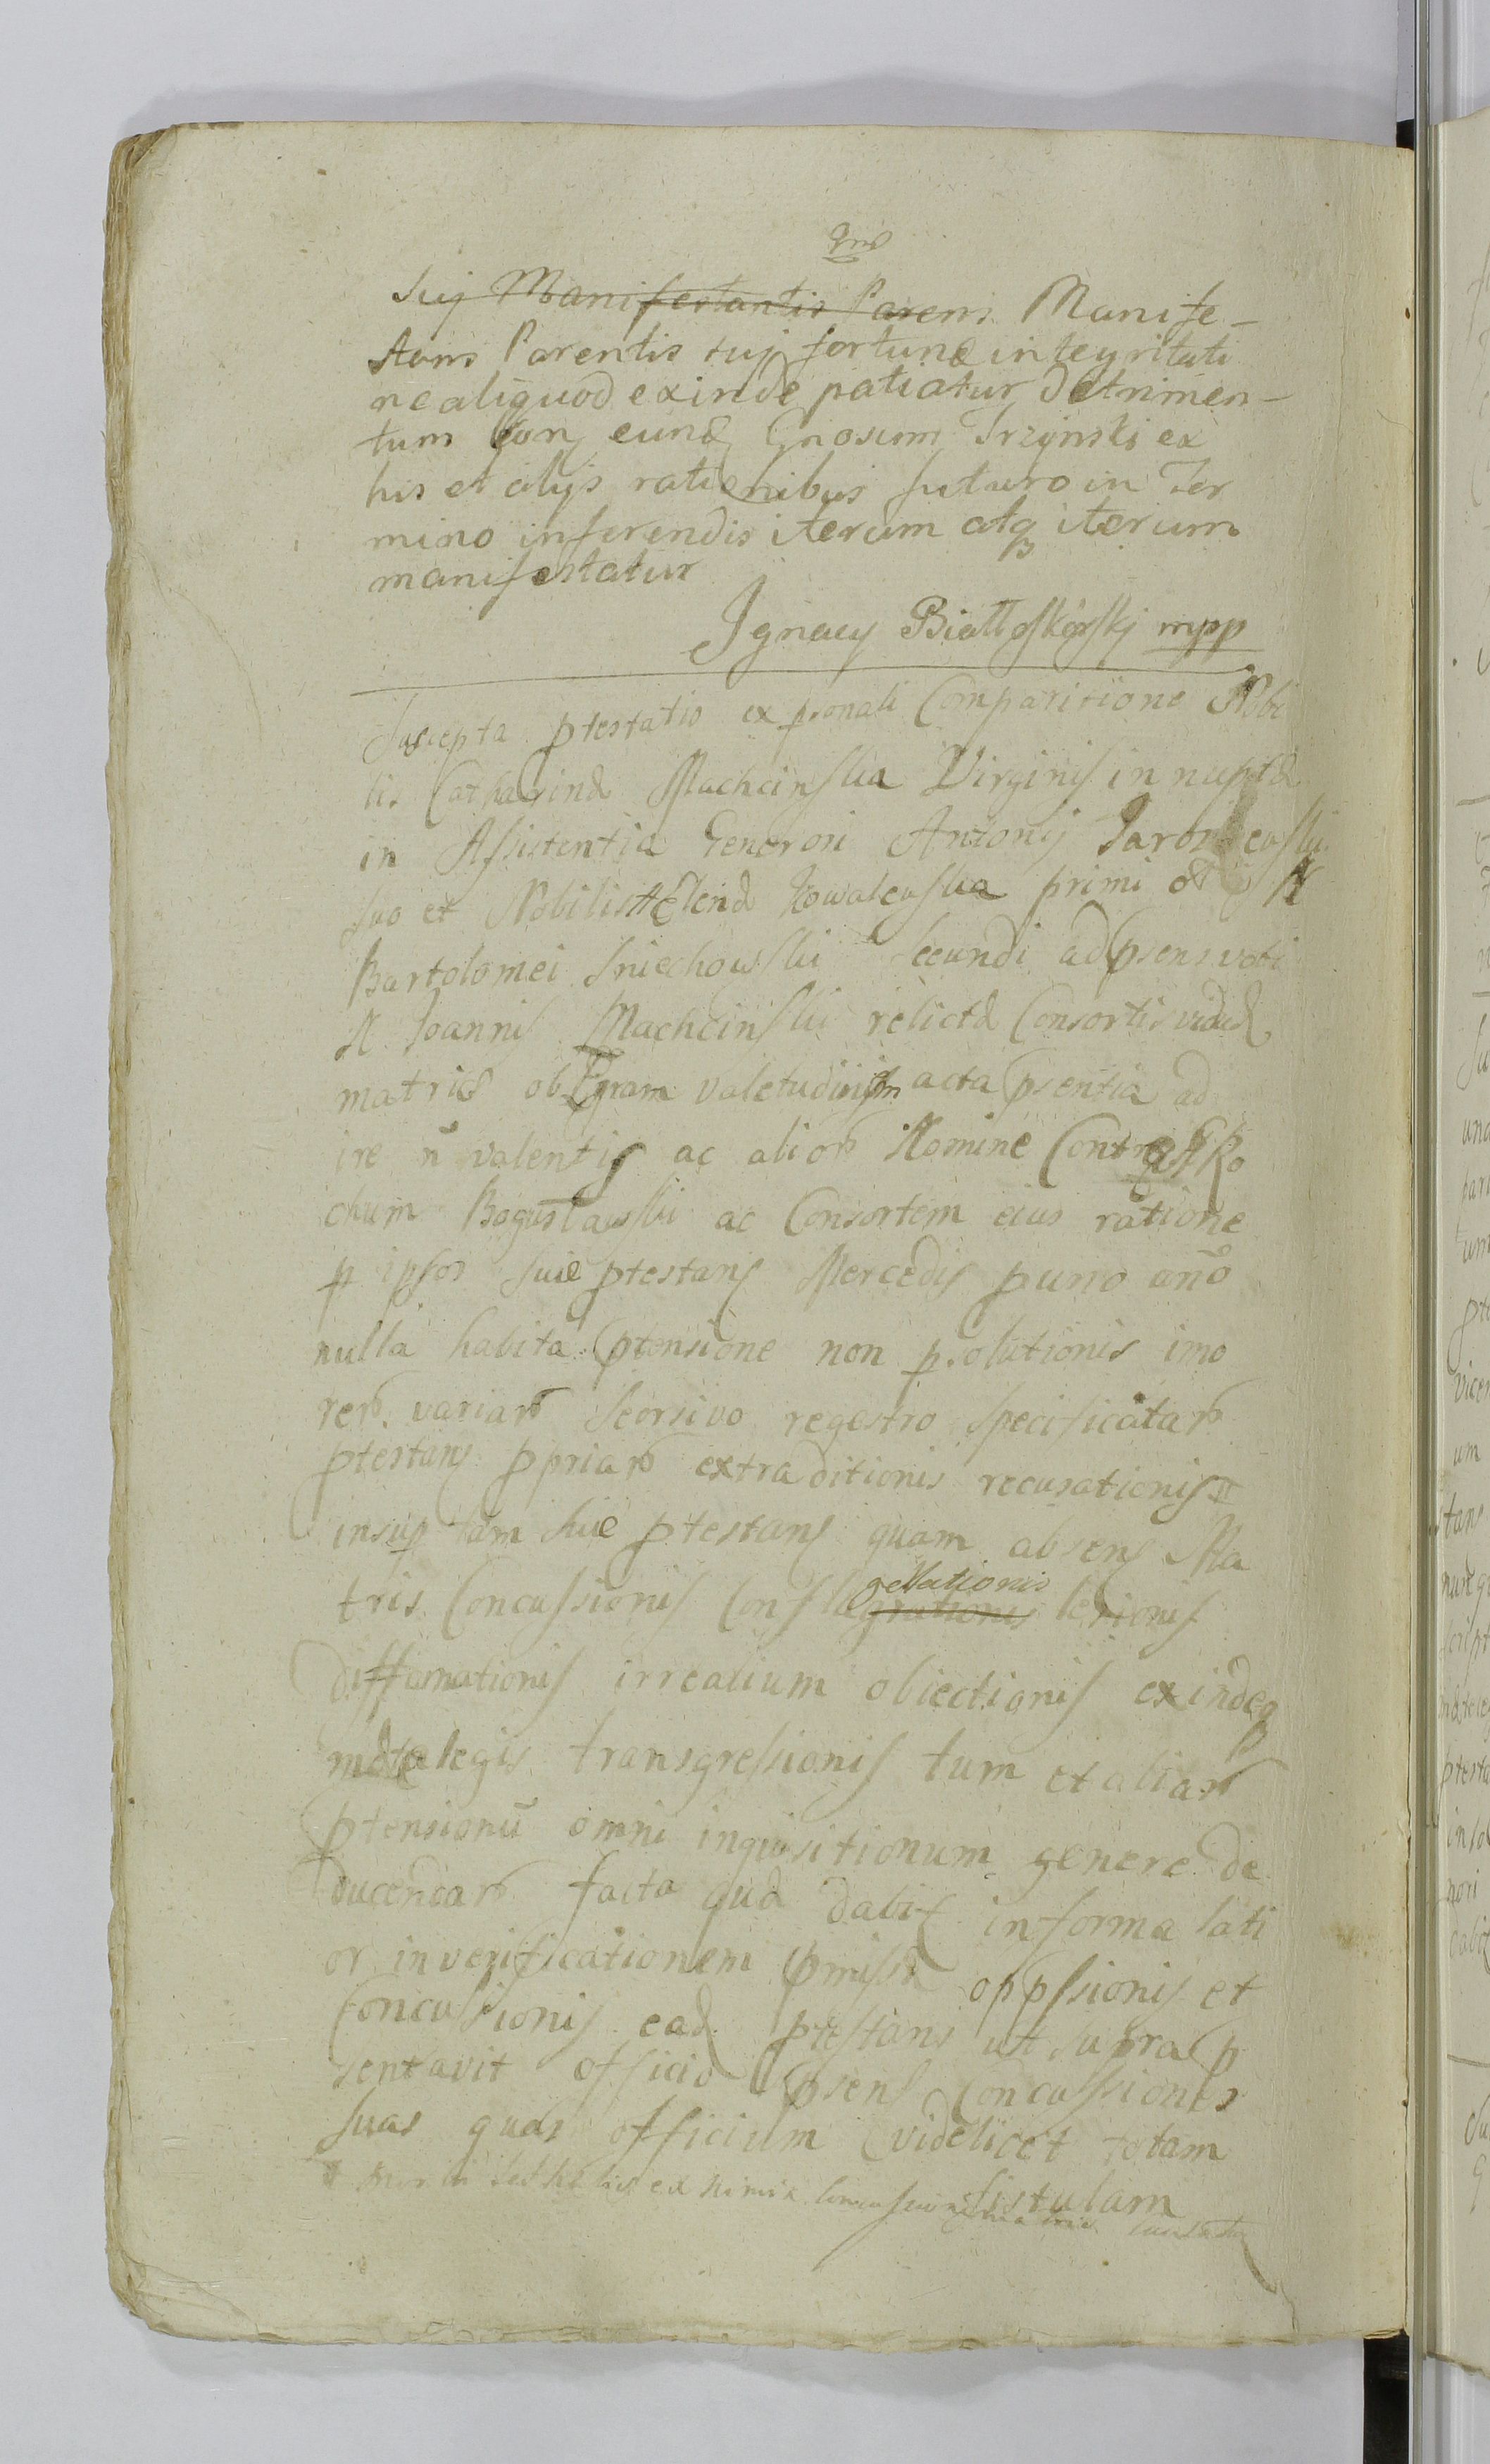 Gnd
suj Manifestantis Parens Manife-
stans Parentis suj fortunæ integritati
ne aliquod exinde patiatur detrimen-
tum con eund Gnosum Trzynski ex
his et alijs rationibus futuro in Ter
mino inferendis iterum atq iterum
manifestatur
Ignacy Białłoskórskj mpp
Suscepta ptestatio ex psonali Comparitione Nobi
lis Catharinæ Machcinska Virginis innuptæ
in Assistentia Generosi Antonij
suo et Nobilis Helenæ Kowalewska primi et N
Bartolomei Sniechowski secundi ad psens voti
N. Joannis Machcinski relictæ Consortis viduæ
matris ob ægram valetudinem acta psentia ad
ire n valentis ac alior Nomine Contra G Ro
chum Bogusławski ac Consortem eius ratione
p ipsos suæ ptestans Mercedis p uno anno
nulla habita ptensione non psolutionis imo
rer. variar seorsivo regestro specificatar
ptestans ppriar extraditionis recusationis #
insup tam suæ ptestans quam absens Ma
tris Concussionis Conflagrationis gellationis læsionis
diffamationis irrealium obiectionis exindeq
mdte legis transgressionis tum et aliar
ptensionu omni inquisitionum genere de
ducendar facta qua dabit in forma lati
or in verificationem pmissæ oppssionis et
Concussionis ead ptestans ut supra p
sentavit officio psens concussiones
suas quas officium videlicet totam
fistulam
# ex nimia concussione